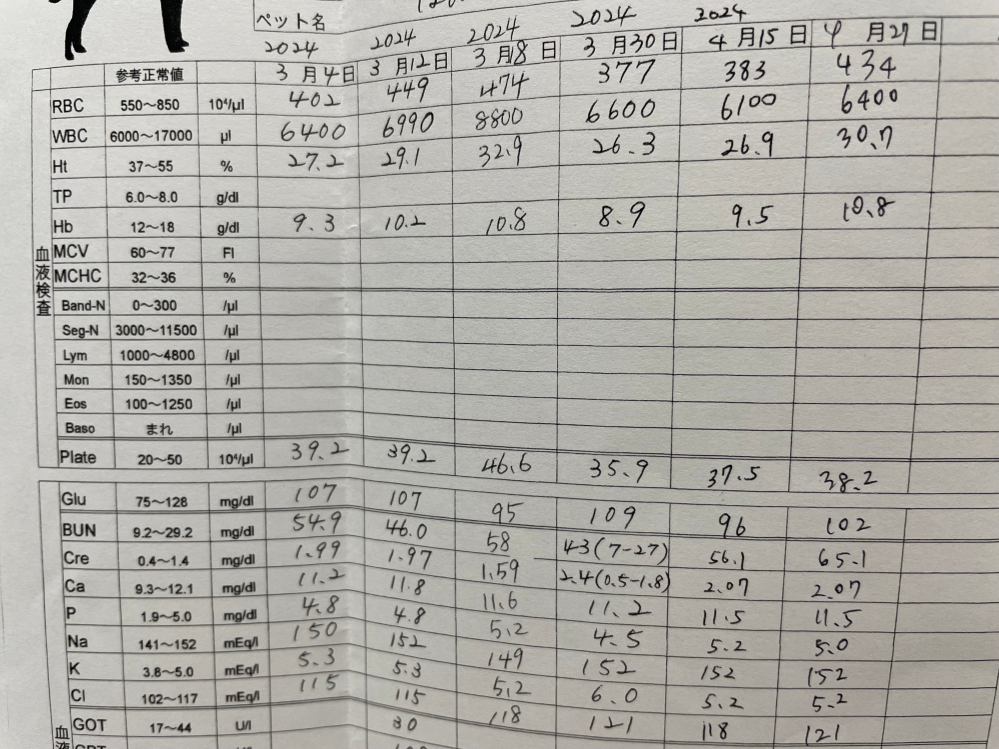 ペット名
2024 2024 2024 2024 2024
参考正常値 3月4日 3月12日 3月18日 3月30日 4月15日 4月27日
RBC 550～850 10⁴/μl 402 449 474 377 383 434
WBC 6000～17000 μl 6400 6990 8800 6600 6100 6400
Ht 37～55 % 27.2 29.1 32.9 26.3 26.9 30.7
TP 6.0～8.0 g/dl
Hb 12～18 g/dl 9.3 10.2 10.8 8.9 9.5 10.8
MCV 60～77 Fl
MCHC 32～36 %
Band-N 0～300 /μl
Seg-N 3000～11500 /μl
Lym 1000～4800 /μl
Mon 150～1350 /μl
Eos 100～1250 /μl
Baso まれ /μl
Plate 20～50 10⁴/μl 39.2 39.2 46.6 35.9 37.5 38.2
血液検査
Glu 75～128 mg/dl 107 107 95 109 96 102
BUN 9.2～29.2 mg/dl 54.9 46.0 58 43(7-27) 56.1 65.1
Cre 0.4～1.4 mg/dl 1.99 1.97 1.59 2.4(0.5-1.8) 2.07 2.07
Ca 9.3～12.1 mg/dl 11.2 11.8 11.6 11.2 11.5 11.5
P 1.9～5.0 mg/dl 4.8 4.8 5.2 4.5 5.2 5.0
Na 141～152 mEq/l 150 152 149 152 152 152
K 3.8～5.0 mEq/l 5.3 5.3 5.2 6.0 5.2 5.2
Cl 102～117 mEq/l 115 115 118 121 118 121
GOT 17～44 U/l 30
血